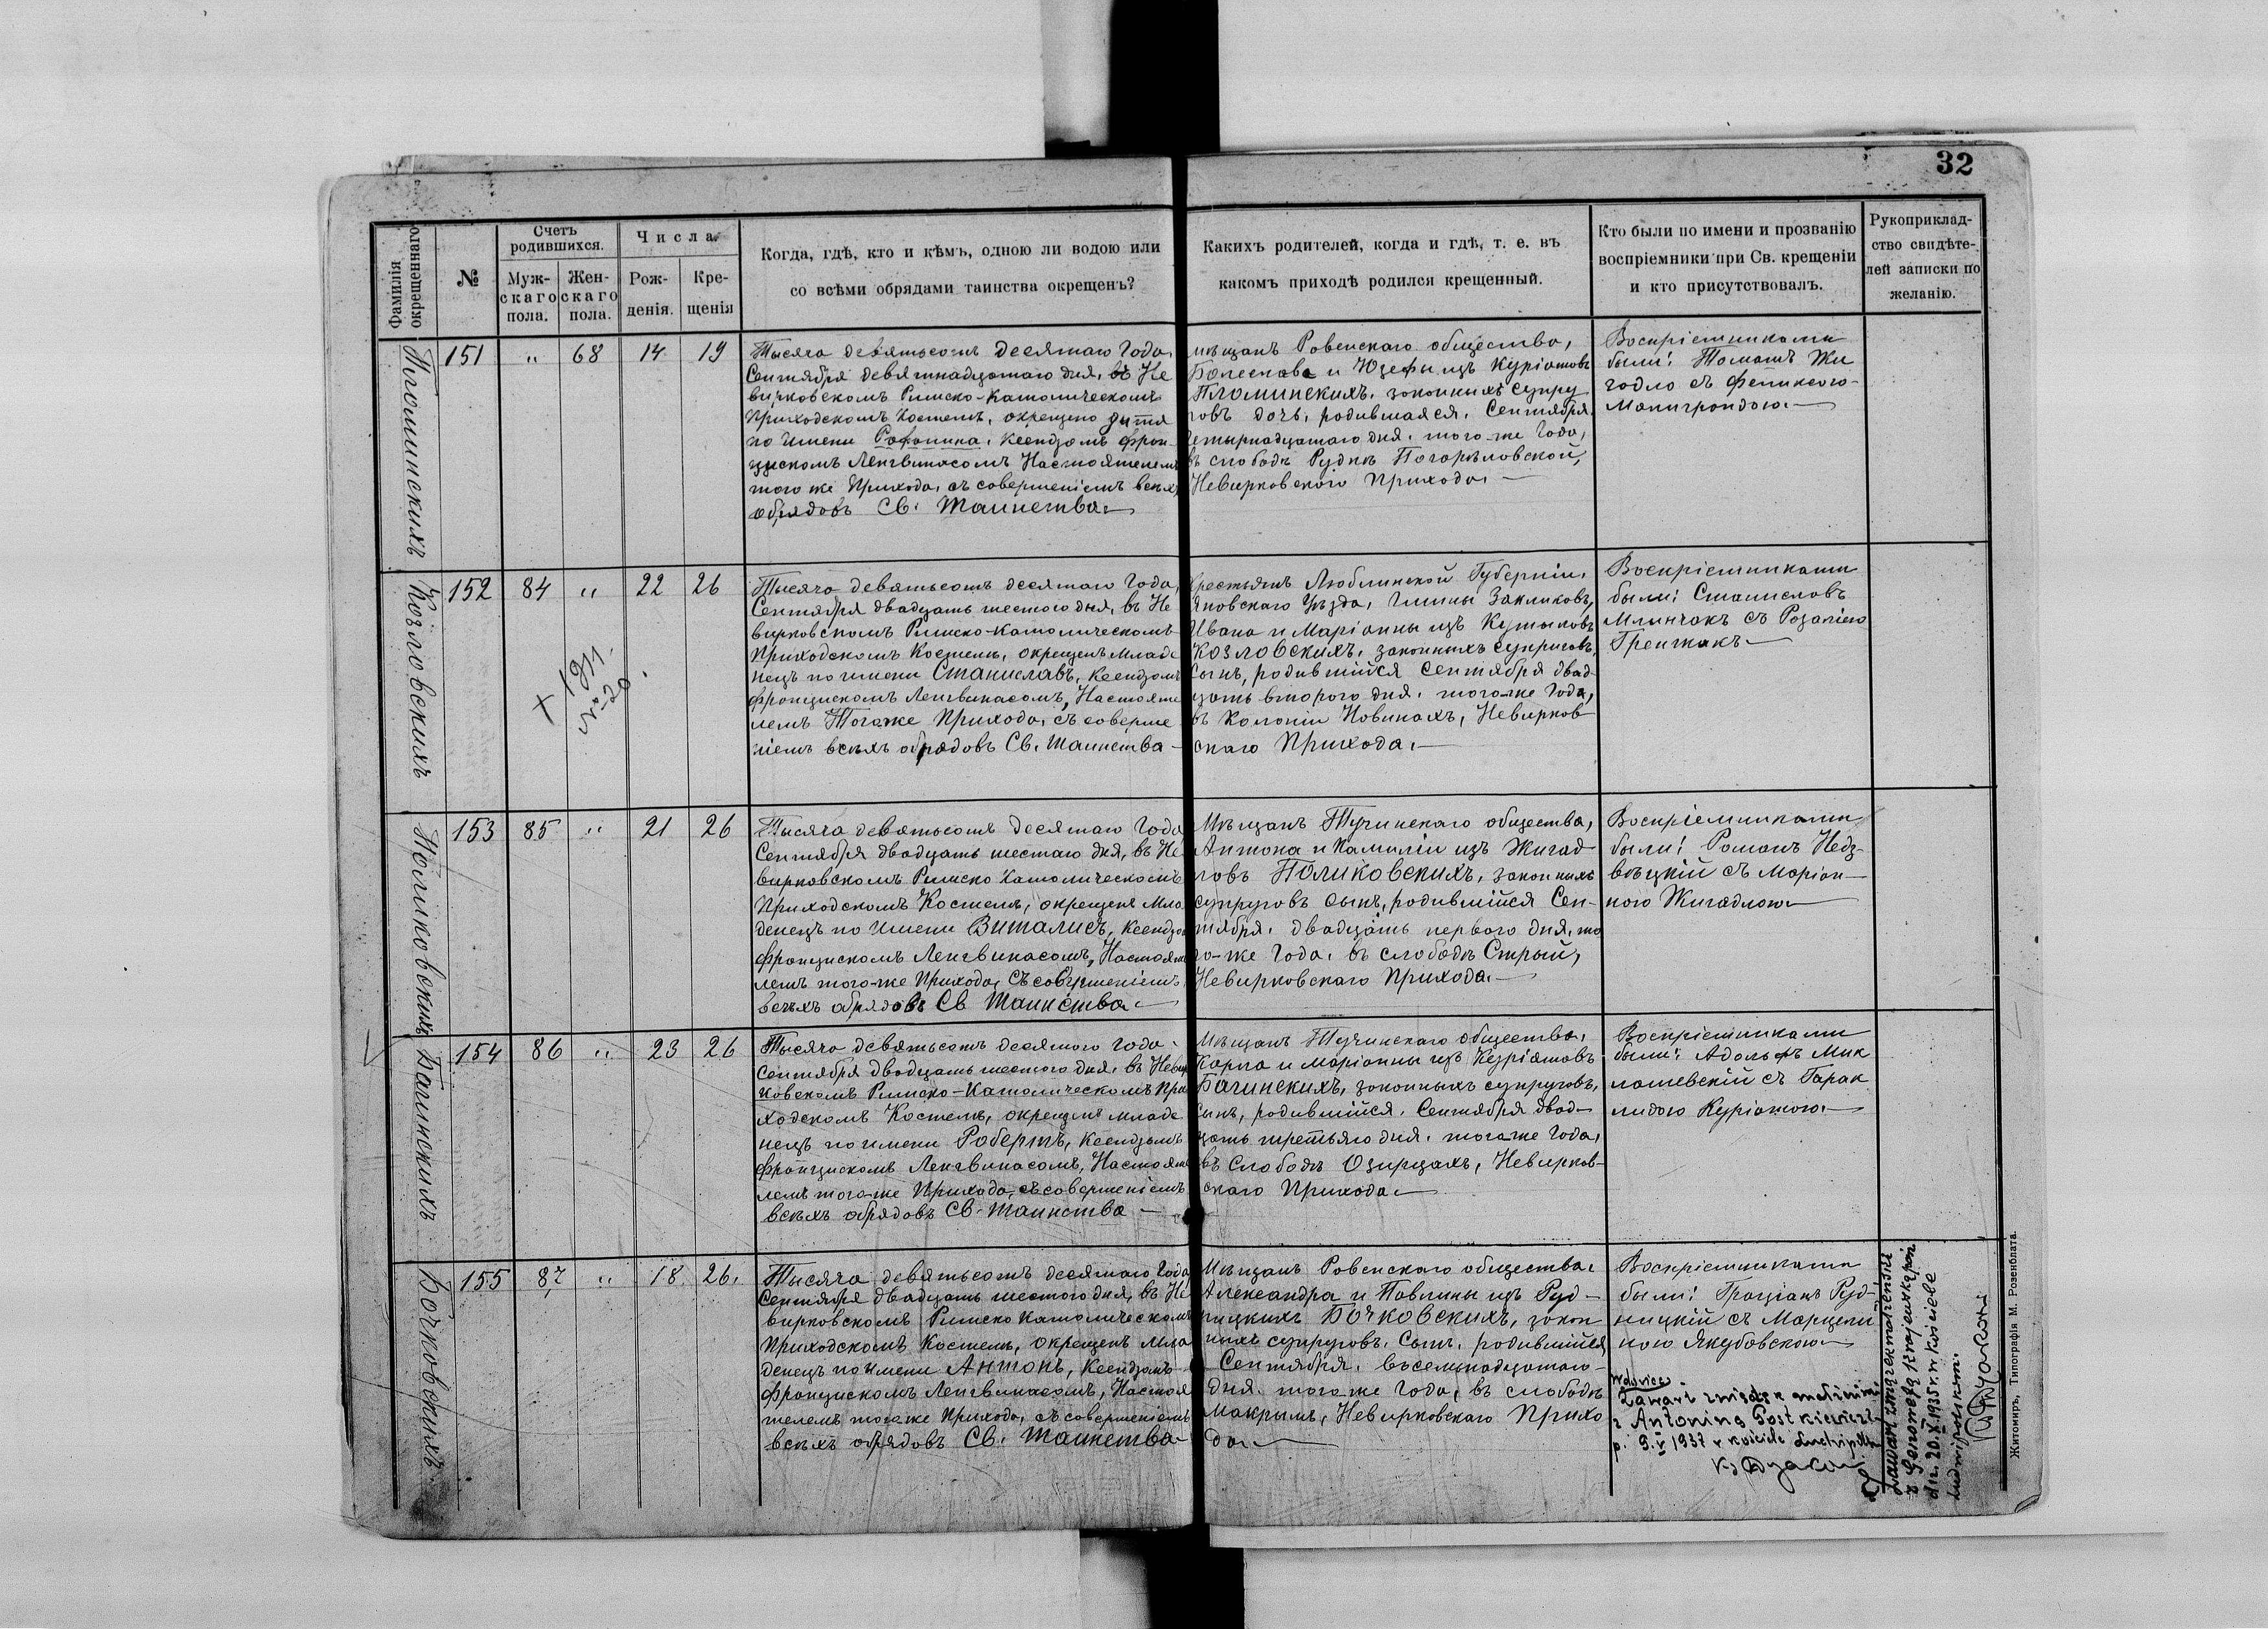 32
Фамилія окрещеннаго
№
Счетъ родившихся.
Муж-
скаго
пола.
Жен-
скаго
пола.
Числа
Рож-
денія.
Кре-
щенія
Когда, гдѣ, кто и кѣмъ, одною ли водою или
со всѣми обрядами таинства окрещенъ?
Какихъ родителей, когда и гдѣ, т. е. въ
какомъ приходѣ родился крещенный.
Кто были по имени и прозванію
воспріемники при Св. крещеніи
и кто присутствовалъ.
Рукоприклад-
ство свидѣте-
лей записки по
желанію.
Пломинскихъ
151 " 68 14 19
Тысяча девятьсотъ десятаго Года,
Сентября девятнадцатаго дня, въ Не
вирковскомъ Римско-Католическомъ
Приходскомъ Костелѣ, окрещено дитя
по имени Ксендзомъ Фран-
цискомъ Ленгвинасомъ Настоятелемъ
того же Прихода, съ совершеніемъ всѣхъ
обрядовъ Св. Таинства.
мѣщанъ Ровенскаго общества,
Болеслава и Юзефы изъ Куріатовъ
Пломинскихъ, законныхъ супру
говъ дочь, родившаяся, Сентября
четырнадцатаго дня, того-же Года,
въ слободѣ Рудкѣ Погорѣловской,
Невирковскаго Прихода.
Воспріемниками
были: Томашъ Жи
гадло съ
Козловскихъ
152 84 " 22 26
+ 1911
№ 20
Тысяча девятьсотъ десятаго Года,
Сентября двадцать шестого дня, въ Не
вирковскомъ Римско-Католическомъ
Приходскомъ Костелѣ, окрещенъ Младе
нецъ по имени Станиславъ, Ксендзомъ
Францискомъ Ленгвинасомъ, Настояте
лемъ Того же Прихода, съ соверше
ніемъ всѣхъ обрядовъ Св. Таинства
Крестьянъ Люблинской Губерніи,
Яновскаго Уѣзда, Гмины Закликовъ,
Ивана и Маріанны изъ Кутыловъ
Козловскихъ, законныхъ супруговъ,
Сынъ, родившійся Сентября двад-
цать второго дня, того-же Года,
въ Колоніи Новинахъ, Невирков
скаго Прихода.
Воспріемниками
были: Станиславъ
Млинчакъ съ Розаліею
Гренчакъ
Поликовскихъ
153 85 " 21 26
Тысяча девятьсотъ десятаго Года
Сентября двадцать шестаго дня, въ Не
вирковскомъ Римско Католическомъ
Приходскомъ Костелѣ, окрещенъ Мла
денецъ по имени Виталисъ, Ксендзо
Францискомъ Ленгвинасомъ, Настояте
лемъ того-же Прихода, Съ совершеніемъ
всѣхъ обрядовъ Св Таинства
Мѣщанъ Тучинскаго общества,
Антона и Камиліи изъ Жигад
ловъ Поликовскихъ, законныхъ
супруговъ сынъ, родившійся Сен-
тября, двадцать перваго дня, то
го-же Года, въ слободѣ Стрый,
Невирковскаго Прихода.
Воспріемниками
были: Романъ Недз-
вѣцкій съ Маріан-
ною Жигадлою
Багинскихъ
154 86 " 23 26
Тысяча девятьсотъ десятого года.
Сентября двадцать шестого дня, въ Невир
ковскомъ Римско-Католическомъ При
ходскомъ Костелѣ, окрещенъ младе
нецъ по имени Робертъ, Ксендзомъ
Францискомъ Ленгвинасомъ, Настояте
лемъ того же Прихода, съ совершеніемъ
всѣхъ обрядовъ Св. Таинства
Мѣщанъ Тучинскаго общества,
Карла и Маріанны изъ Куріатовъ
Багинскихъ, законныхъ супруговъ,
Сынъ, родившійся, Сентября двад-
цать третьяго дня, того же Года,
въ Слободѣ Озирцахъ, Невирков-
скаго Прихода
Воспріемниками
были: Адольфъ Мик
лашевскій съ Гарак
лидою Куріатою.
Бочковскихъ
155 87 " 18 26.
Тысяча девятьсотъ десятаго Года,
Сентября двадцать шестого дня, въ Не
вирковскомъ Римско Католическомъ
Приходскомъ Костелѣ, окрещенъ Мла
денецъ по имени Антонъ, Ксендзомъ
Францискомъ Ленгвинасомъ, Настоя
телемъ того же Прихода, съ совершеніемъ
всѣхъ обрядовъ Св. Таинства
Мѣщанъ Ровенскаго общества,
Александра и Павлины изъ Руд-
ницкихъ Бочковскихъ, закон
ныхъ супруговъ, Сынъ, родившійся
Сентября, въсемьнадцатаго
дня, того же Года, въ слободѣ
Мокрымъ, Невирковскаго Прихо
да.
Воспріемниками
были: Граціанъ Руд-
ницкій съ Марцели
ною Якубовскою
Wdowiec
Zawarł związek małżeński
z Antoniną Postkiewicz
p. 9.V 1937 w kościele Ludwipolu
Zawarł związek małżeński
z Genowefą Krajewską
dn. 20.X.1935 r. w kościele
Ludwipolskim.
Житомиръ, Типографія М. Розенблата.